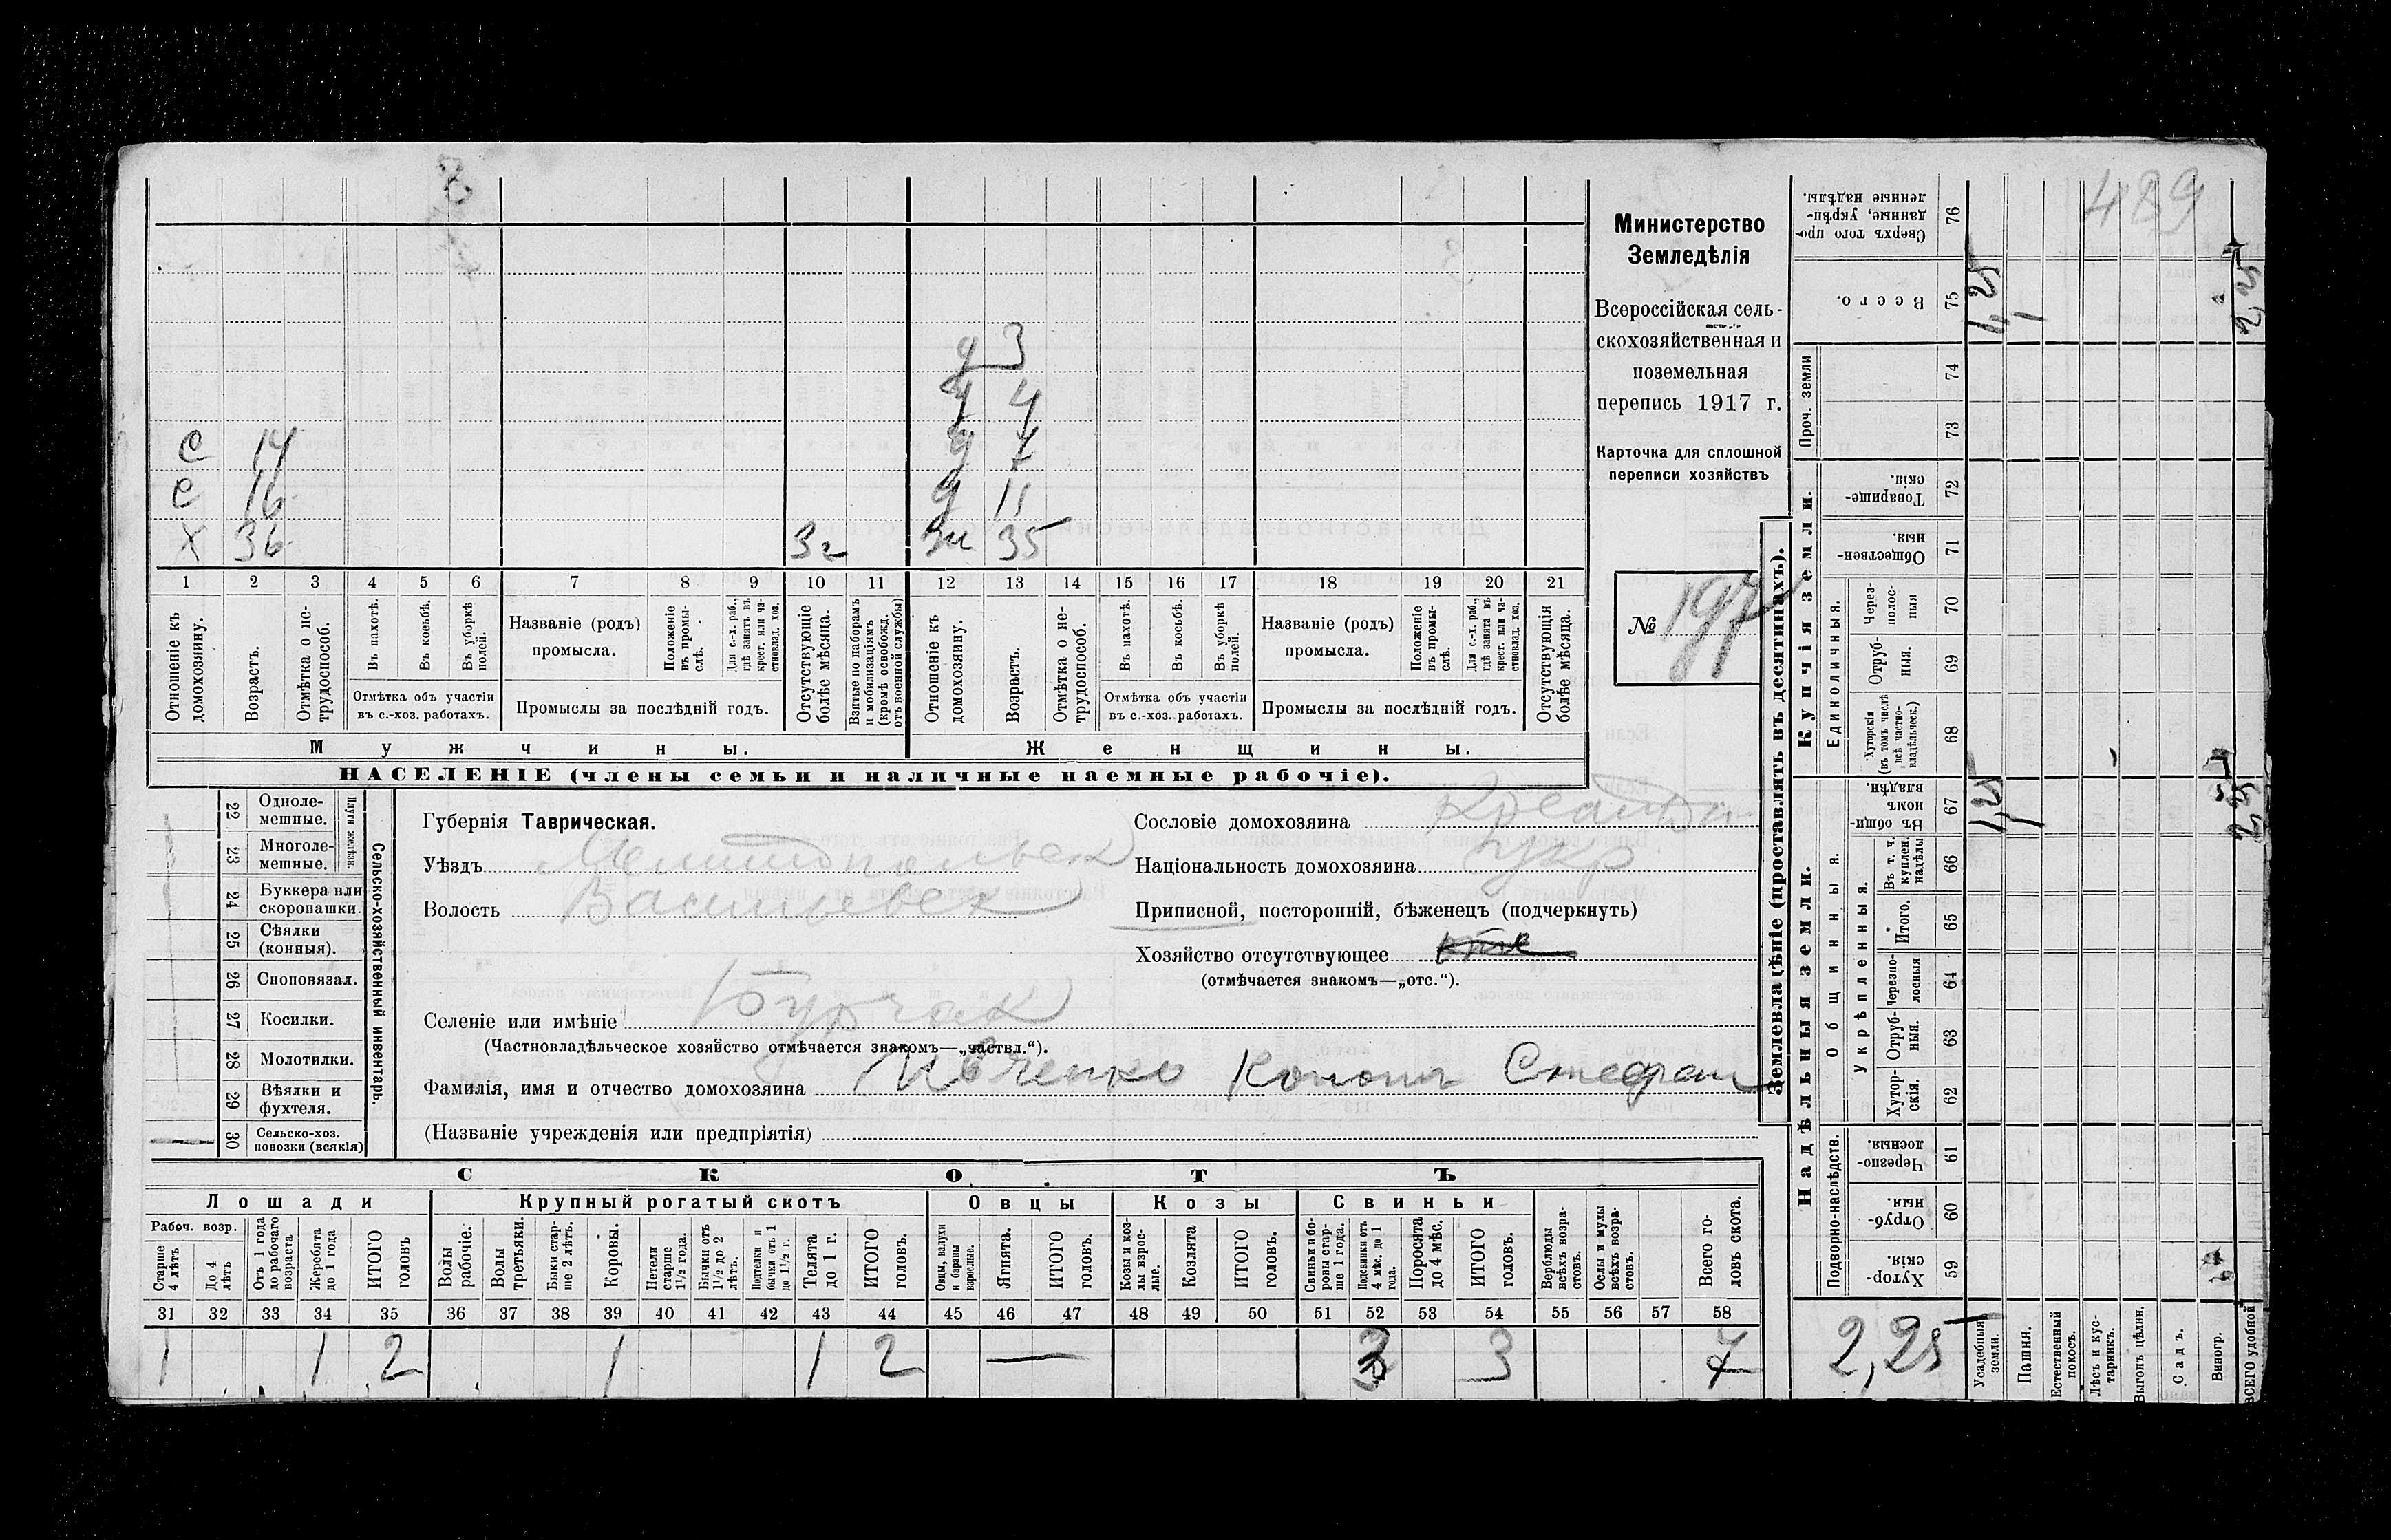 489
Министерство
Земледѣлія
Всероссійская сель-
скохозяйственная и
поземельная
перепись 1917 г.
Карточка для сплошной
переписи хозяйствъ
№ 197
д 3
д 4
с 14 д 7
с 16 д 11
х 36 3 г 35
1 2 3 4 5 6 7 8 9 10 11 12 13 14 15 16 17 18 19 20 21
Отношеніе къ домохозяину.
Возрастъ.
Отмѣтка о не-трудоспособ.
Въ пахотѣ.
Въ косьбѣ.
Въ уборкѣ полей.
Отмѣтка объ участіи
въ с.-хоз. работахъ.
Названіе (родъ)
промысла.
Положеніе въ промы-слѣ.
Для с.-х. раб., гдѣ занятъ въ крест. или ча-стновлад. хоз.
Промыслы за послѣдній годъ.
Отсутствующіе болѣе мѣсяца.
Взятые по наборамъ и мобилизаціямъ (кромѣ освобожд. отъ военной службы)
Отношеніе къ домохозяину.
Возрастъ.
Отмѣтка о не-трудоспособ.
Въ пахотѣ.
Въ косьбѣ.
Въ уборкѣ полей.
Отмѣтка объ участіи
въ с.-хоз. работахъ.
Названіе (родъ)
промысла.
Положеніе въ промы-слѣ.
Для с.-х. раб., гдѣ занята въ крест. или ча-стновлад. хоз.
Промыслы за послѣдній годъ.
Отсутствующія болѣе мѣсяца.
Мужчины. Женщины.
НАСЕЛЕНІЕ (члены семьи и наличные наемные рабочіе).
Сельско-хозяйственный инвентарь.
Плуги желѣзн.
22 Одноле-мешные.
23 Многоле-мешные.
24 Буккера или скоропашки.
25 Сѣялки (конныя).
26 Сноповязал.
27 Косилки.
28 Молотилки.
29 Вѣялки и фухтеля.
30 Сельско-хоз. повозки (всякія)
Губернія Таврическая.
Уѣздъ Мелитопольск
Волость Васильевск
Селеніе или имѣніе Бурчак
(Частновладѣльческое хозяйство отмѣчается знакомъ—„частвл.“).
Фамилія, имя и отчество домохозяина Ивченко Кононъ Стефан
(Названіе учрежденія или предпріятія)
Сословіе домохозяина
Національность домохозяина укр
Приписной, посторонній, бѣженецъ (подчеркнуть)
Хозяйство отсутствующее
(отмѣчается знакомъ—„отс.“).
СКОТЪ
Лошади Крупный рогатый скотъ Овцы Козы Свиньи
Рабоч. возр.
Старше 4 лѣтъ
До 4 лѣтъ
Отъ 1 года до рабочаго возраста
Жеребята до 1 года
ИТОГО головъ
Волы рабочіе.
Волы третьяки.
Быки стар-ше 2 лѣтъ.
Коровы.
Нетели старше 1½ года.
Бычки отъ 1½ до 2 лѣтъ.
Подтелки и бычки отъ 1 до 1½ г.
Телята до 1 г.
ИТОГО головъ.
Овцы, валухи и бараны взрослые.
Ягнята.
ИТОГО головъ.
Козы и коз-лы взрос-лые.
Козлята
ИТОГО головъ.
Свиньи и бо-ровы стар-ше 1 года.
Подсвинки отъ 4 мѣс. до 1 года.
Поросята до 4 мѣс.
ИТОГО головъ.
Верблюды всѣхъ возра-стовъ.
Ослы и мулы всѣхъ возра-стовъ.
Всего го-ловъ скота.
31 32 33 34 35 36 37 38 39 40 41 42 43 44 45 46 47 48 49 50 51 52 53 54 55 56 57 58
1 1 2 1 1 2 — 3 3 7
Землевладѣніе (проставлять въ десятинахъ).
Надѣльныя земли. Купчія земли. Проч. земли
Подворно-наслѣдств.
Общинныя.
Укрѣпленныя.
Единоличныя.
59 Хутор-скія.
60 Отруб-ныя.
61 Черезпо-лосныя.
62 Хутор-скія.
63 Отруб-ныя.
64 Черезпо-лосныя
65 Итого.
66 Въ т. ч. куплен. надѣлы
67 Въ общин-номъ владѣн.
68 Хуторскія (въ томъ числѣ всѣ частно-владѣльческ.)
69 Отруб-ныя.
70 Через-полос-ныя
71 Обществен-ныя.
72 Товарище-скія.
73
74
75 Всего.
76 Сверхъ того про-данные, укрѣп-ленные надѣлы.
Усадебныя земли.
Пашня.
Естественный покосъ.
Лѣсъ и кус-тарникъ.
Выгонъ цѣлин.
Садъ.
Виногр.
ВСЕГО удобной
1,25 1,25
1 1
2,25 2,25
2,25